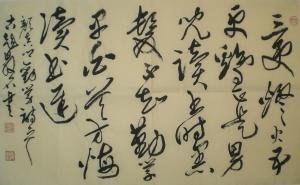 三更燈火五
更雞正是男
兒讀書時黑
髮不知勤學
早白首方悔
讀書遲
顏真卿勸學詩